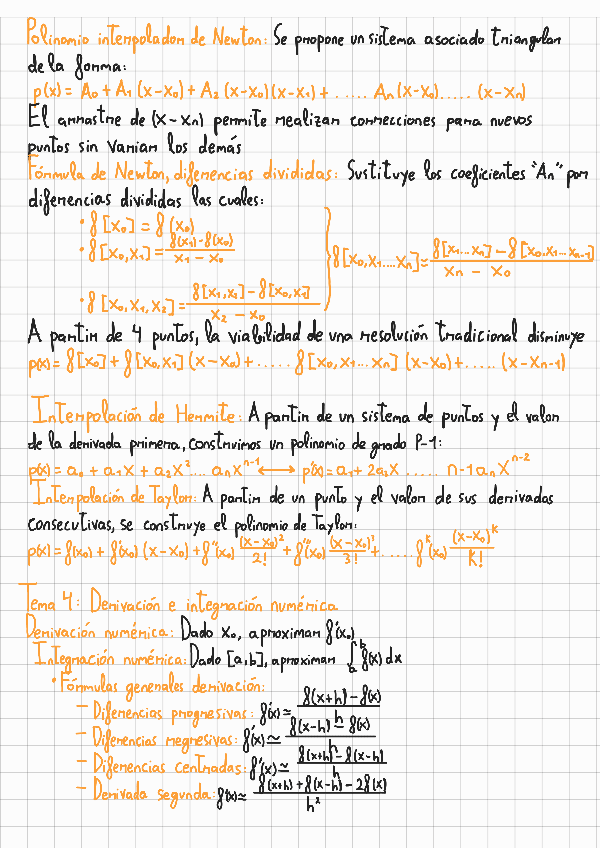 Polinomio interpolador de Newton: Se propone un sistema asociado triangular
de la forma:
p(x) = A₀ + A₁ (x-x₀) + A₂ (x-x₀)(x-x₁) + ..... Aₙ (x-x₀)..... (x-xₙ)
El arrastre de (x-xₙ) permite realizar correcciones para nuevos
puntos sin variar los demás
Fórmula de Newton, diferencias divididas: Sustituye los coeficientes "Aₙ" por
diferencias divididas las cuales:
· f[x₀] = f(x₀)
· f[x₀,x₁] = (f(x₁)-f(x₀))/(x₁-x₀)
f[x₀,x₁...xₙ] = (f[x₁...xₙ] - f[x₀,x₁...xₙ₋₁])/(xₙ - x₀)
· f[x₀,x₁,x₂] = (f[x₁,x₂] - f[x₀,x₁])/(x₂ - x₀)
A partir de 4 puntos, la viabilidad de una resolución tradicional disminuye
p(x) = f[x₀] + f[x₀,x₁] (x-x₀) + ..... f[x₀,x₁...xₙ] (x-x₀) + ..... (x-xₙ₋₁)
Interpolación de Hermite: A partir de un sistema de puntos y el valor
de la derivada primera, construimos un polinomio de grado P-1:
p(x) = a₀ + a₁x + a₂x².... aₙxⁿ⁻¹ ⟷ p'(x) = a₁ + 2a₂x ...... n-1aₙxⁿ⁻²
Interpolación de Taylor: A partir de un punto y el valor de sus derivadas
consecutivas, se construye el polinomio de Taylor:
p(x) = f(x₀) + f'(x₀) (x-x₀) + f''(x₀) (x-x₀)²/2! + f'''(x₀) (x-x₀)³/3! + ..... fᵏ(x₀) (x-x₀)ᵏ/k!
Tema 4: Derivación e integración numérica
Derivación numérica: Dado x₀, aproximar f'(x₀)
Integración numérica: Dado [a,b], aproximar ∫ₐᵇ f(x) dx
· Fórmulas generales derivación:
- Diferencias progresivas: f'(x) ≃ (f(x+h) - f(x))/h
- Diferencias regresivas: f'(x) ≃ (f(x-h) - f(x))/h
- Diferencias centradas: f'(x) ≃ (f(x+h) - f(x-h))/h
- Derivada segunda: f'(x) ≃ (f(x+h) + f(x-h) - 2f(x))/h²